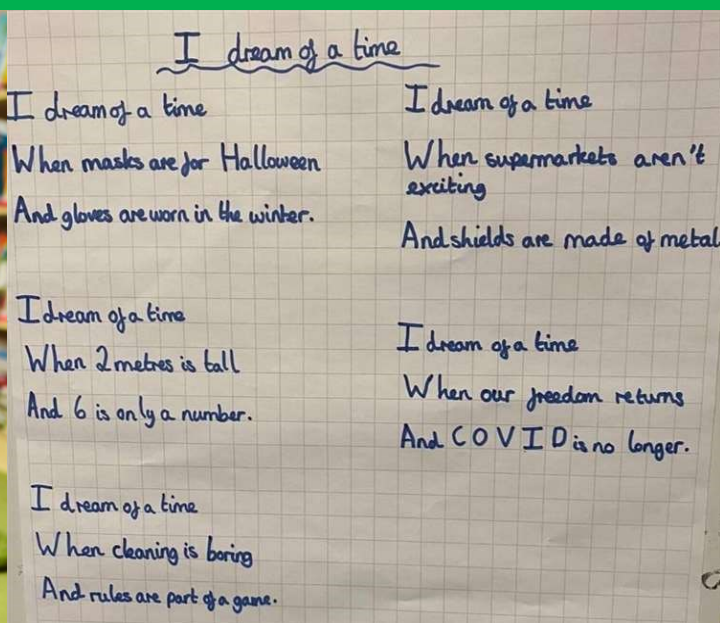 I dream of a time
I dream of a time
When masks are for Halloween
And gloves are worn in the winter.
I dream of a time
When 2 metres is tall
And 6 is only a number.
I dream of a time
When cleaning is boring
And rules are part of a game.
I dream of a time
When supermarkets aren't
exciting
And shields are made of metal
I dream of a time
When our freedom returns
And COVID is no longer.